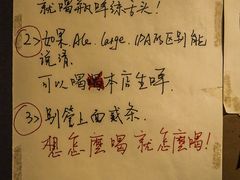 就喝瓶啤练舌头!
2> 如果 Ale. Large. IPA 的区别能
说清.
可以喝 本店生啤.
3> 别管上面贰条.
想怎麽喝 就怎麽喝!